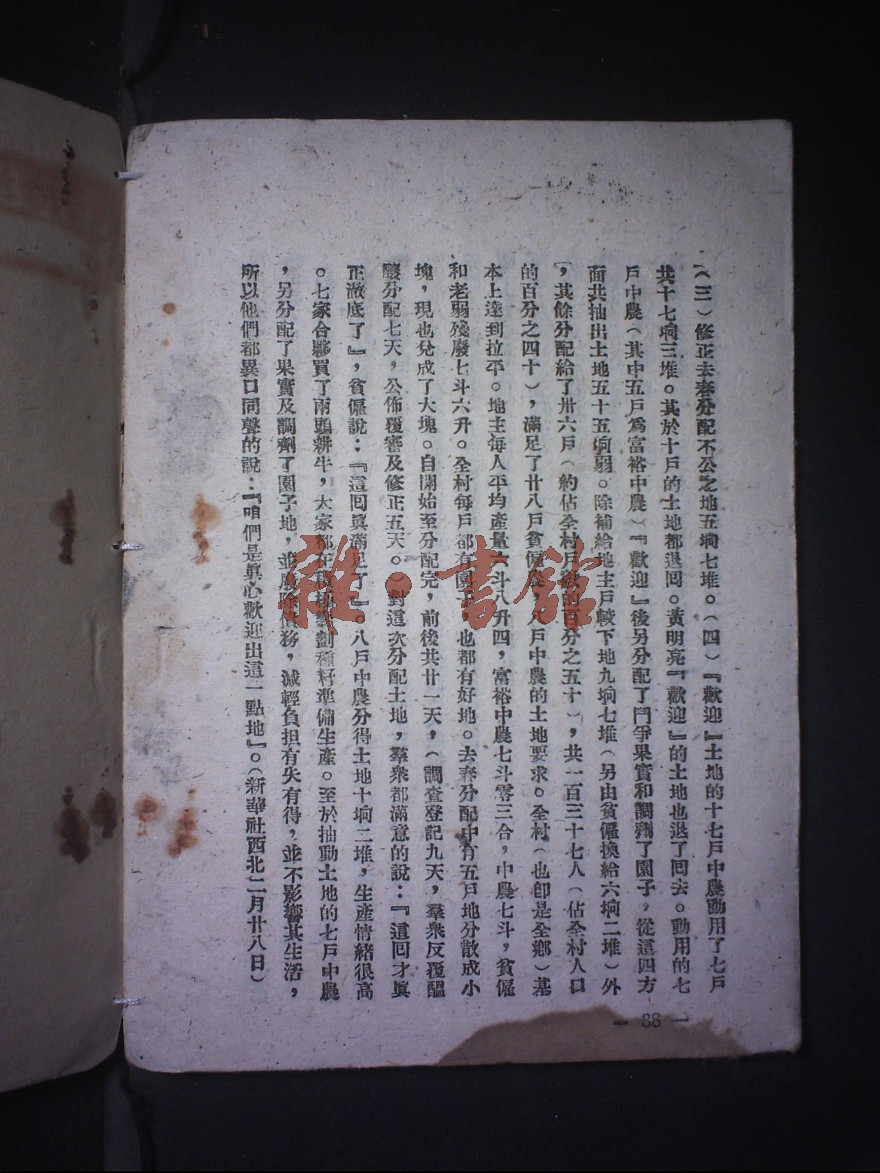 （三）修正去春分配不公之地五垧七堆。（四）『歡迎』土地的十七戶中農動用了七戶
共十七垧三堆。其於十戶的土地都退回。黃明亮『歡迎』的土地也退了回去。動用的七
戶中農（其中五戶爲富裕中農）『歡迎』後另分配了鬥爭果實和調劑了園子，從這四方
面共抽出土地五十五垧弱。除補給地主戶較下地九垧七堆（另由貧僱換給六垧二堆）外
，其餘分配給了卅六戶（約佔全村戶數的百分之五十），共一百三十七人（佔全村人口
的百分之四十），滿足了廿八戶貧僱農，八戶中農的土地要求。全村（也卽是全鄉）基
本上達到拉平。地主每人平均產量六斗八升四，富裕中農七斗零三合，中農七斗，貧僱
和老弱殘廢七斗六升。全村每戶都有園子，也都有好地。去春分配中有五戶地分散成小
塊，現也兌成了大塊。自開始至分配完，前後共廿一天，（調查登記九天，羣衆反覆醞
釀分配七天，公佈覆審及修正五天。）對這次分配土地，羣衆都滿意的說：『這回才眞
正澈底了』，貧僱說：『這回眞滿足了』。八戶中農分得土地十垧二堆，生產情緒很高
。七家合夥買了兩頭耕牛，大家都在積極籌劃種籽準備生產。至於抽動土地的七戶中農
，另分配了果實及調劑了園子地，並廢除債務，減輕負担有失有得，並不影響其生活，
所以他們都異口同聲的說：『咱們是眞心歡迎出這一點地』。（新華社西北二月廿八日）
— 38 —
雜·書館